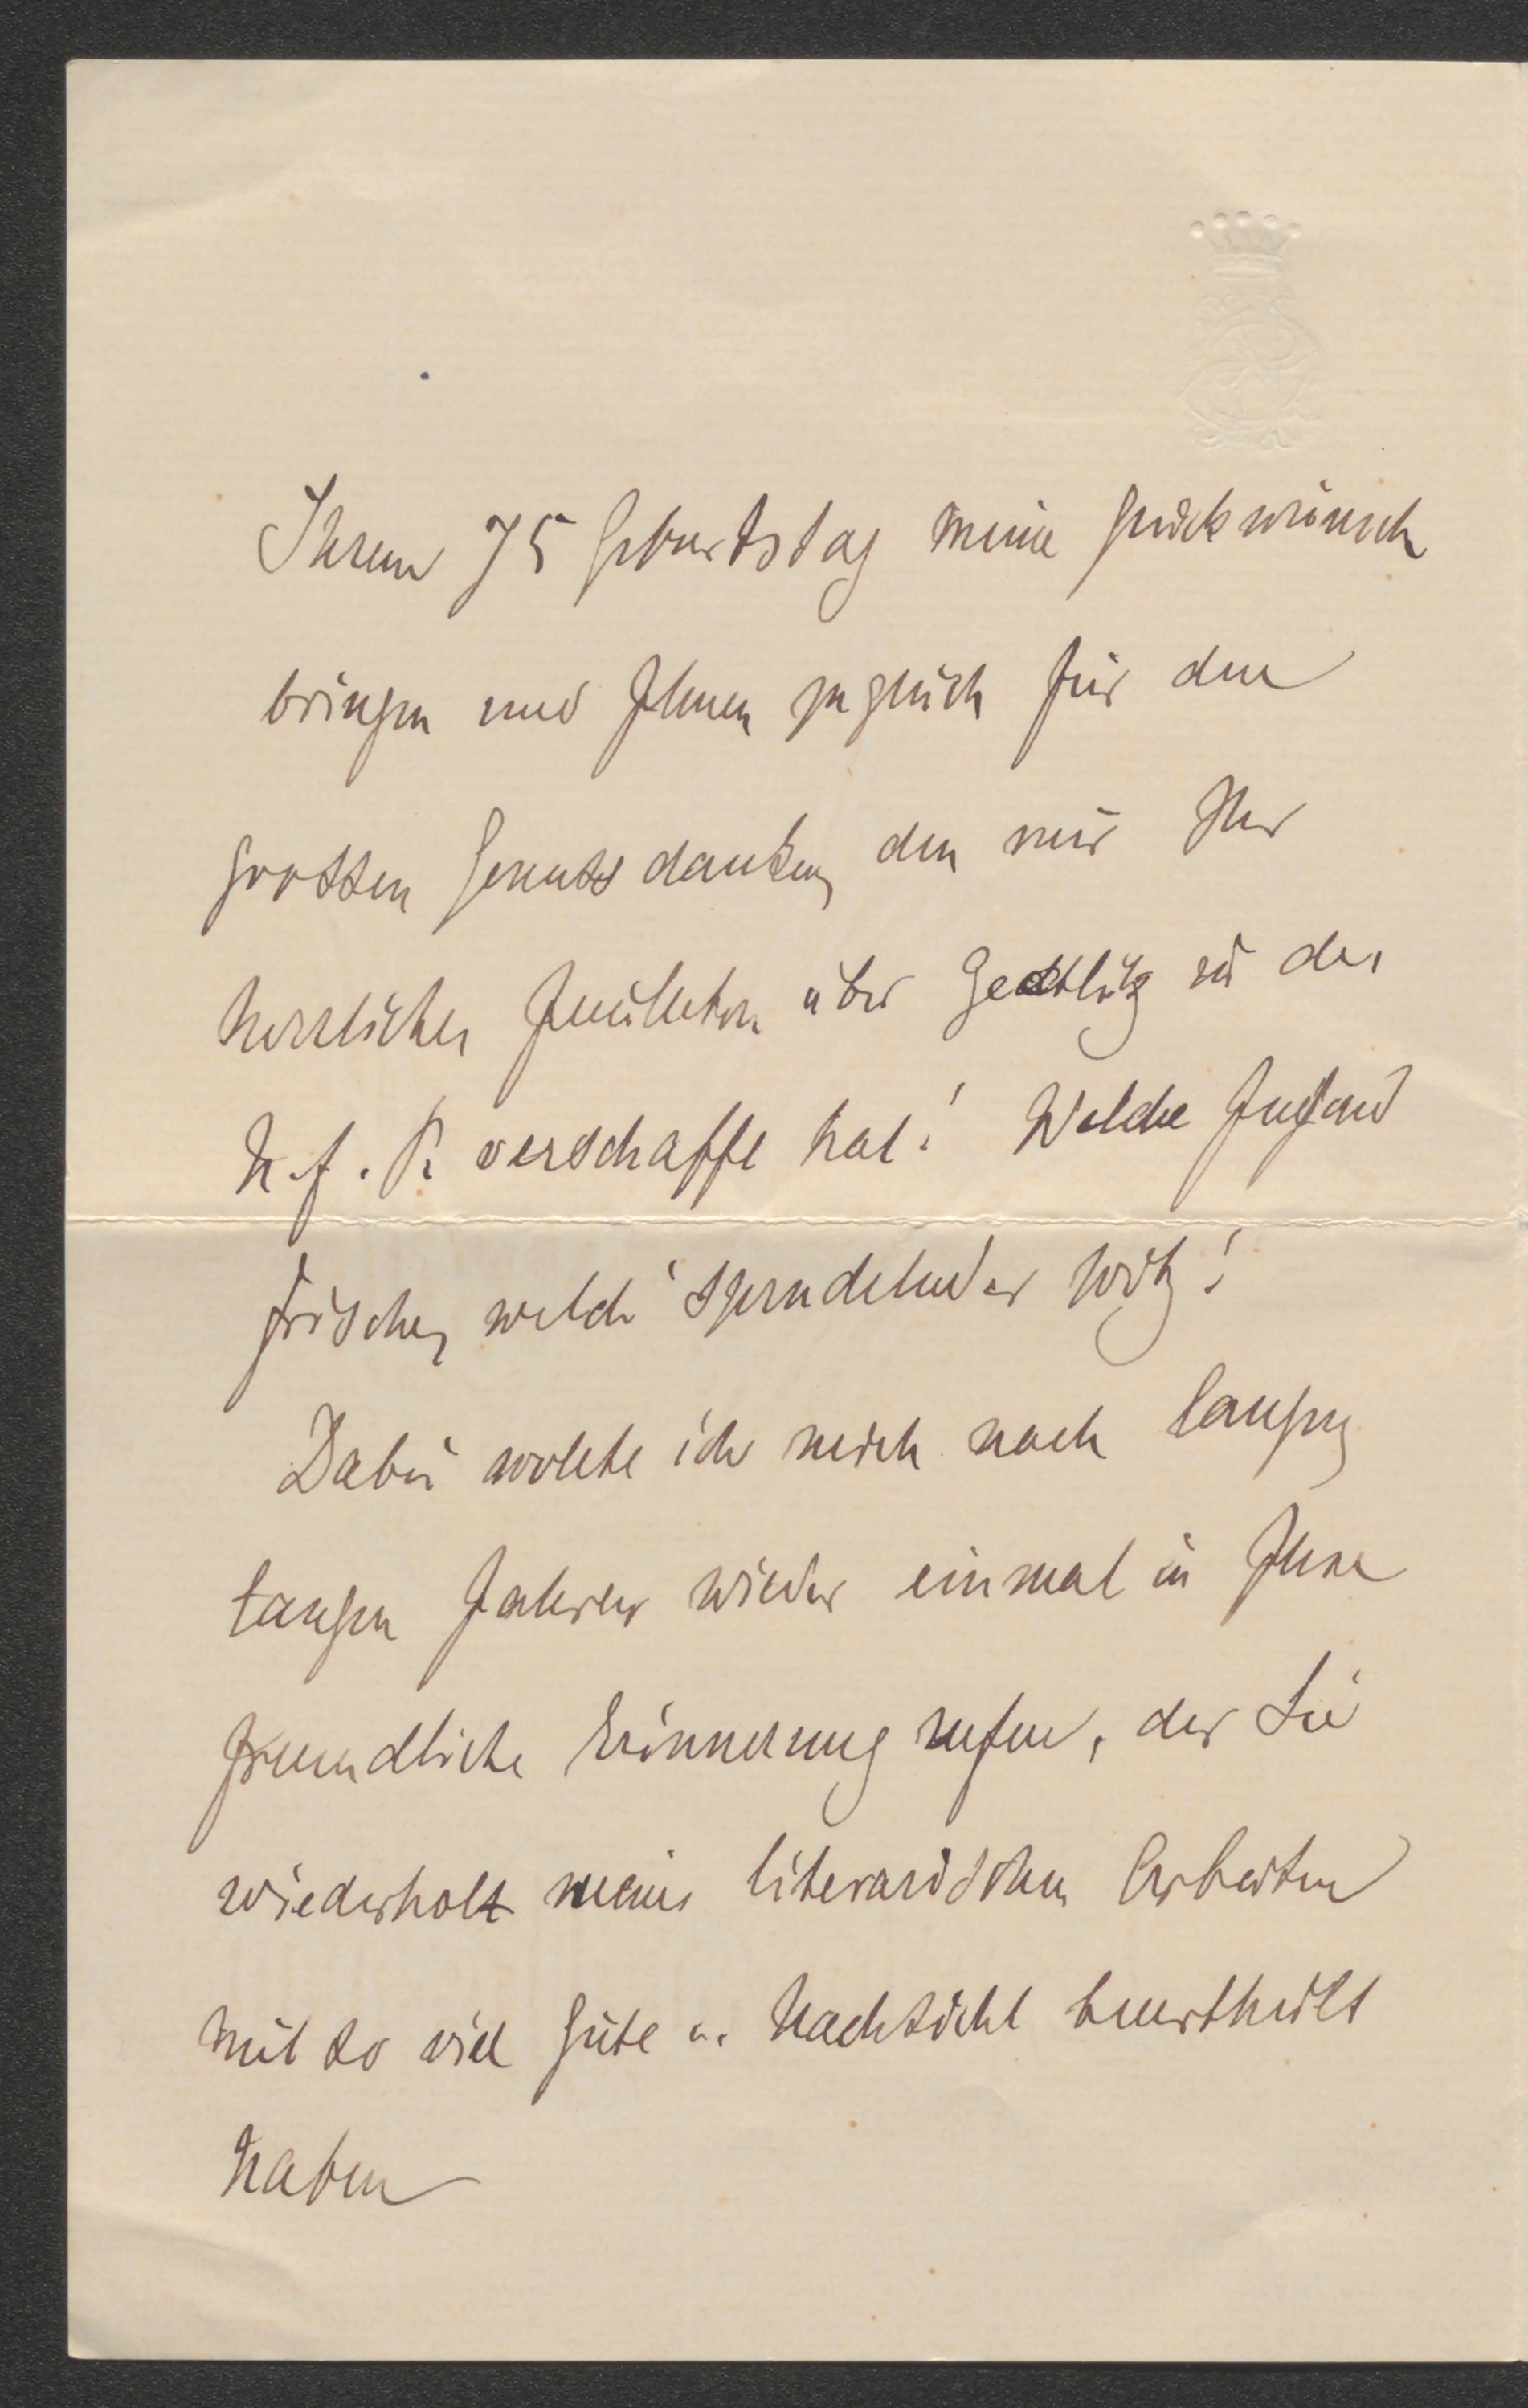 Ihrem 75 Geburtstag meine Glückwünsche
bringen und Ihnen zugleich für den
grossen Genuss danken, den mir Ihr
herrliches Feuilleton über in der
N. f. P. verschafft hat! Welche Jugend
frische, welch' sprudelnder Witz!
Dabei wollte ich mich nach langen,
langen Jahren wieder einmal in Ihre
freundliche Erinnerung rufen, der Sie
wiederholt meine literarischen Arbeiten
mit so viel Güte u. Nachsicht beurtheilt
haben